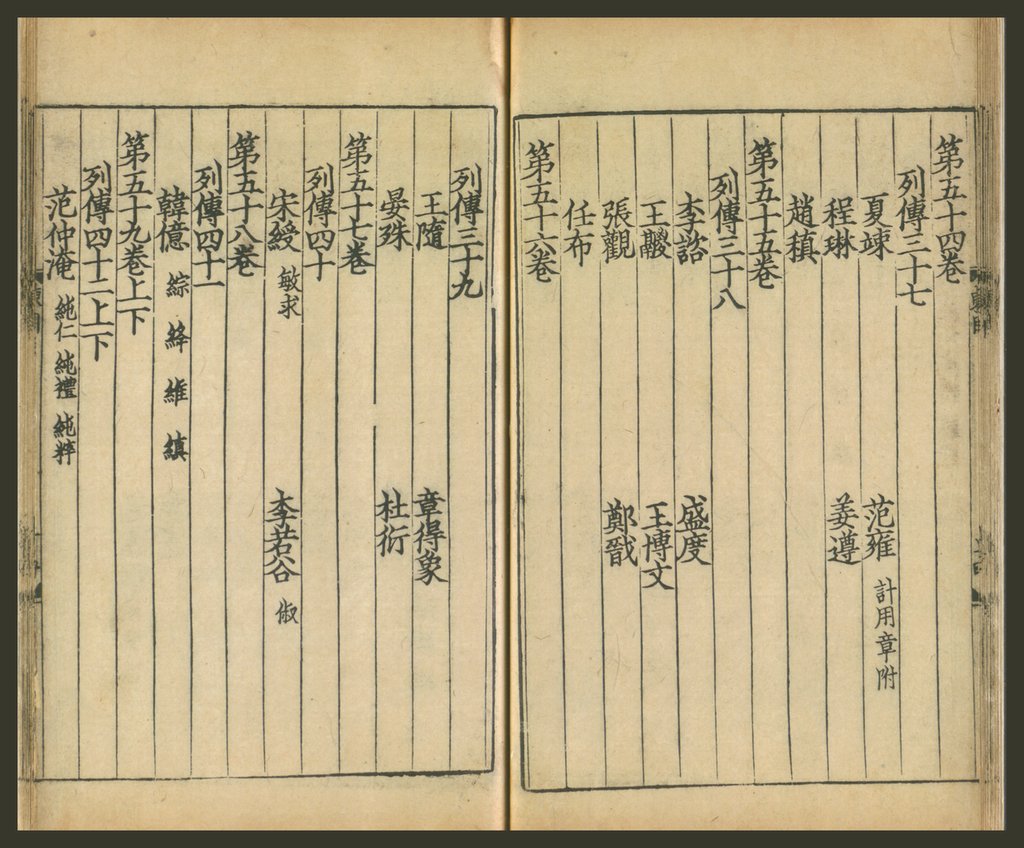 第五十四卷
列傳三十七
夏竦 范雍 計用章附
程琳 姜遵
趙稹
第五十五卷
列傳三十八
李諮 盛度
王鬷 王博文
張觀 鄭戩
任布
第五十六卷
列傳三十九
王隨 章得象
晏殊 杜衍
第五十七卷
列傳四十
宋綬 敏求 李若谷 俶
第五十八卷
列傳四十一
韓億 綜 絳 維 縝
第五十九卷上下
列傳四十二上下
范仲淹 純仁 純禮 純粹